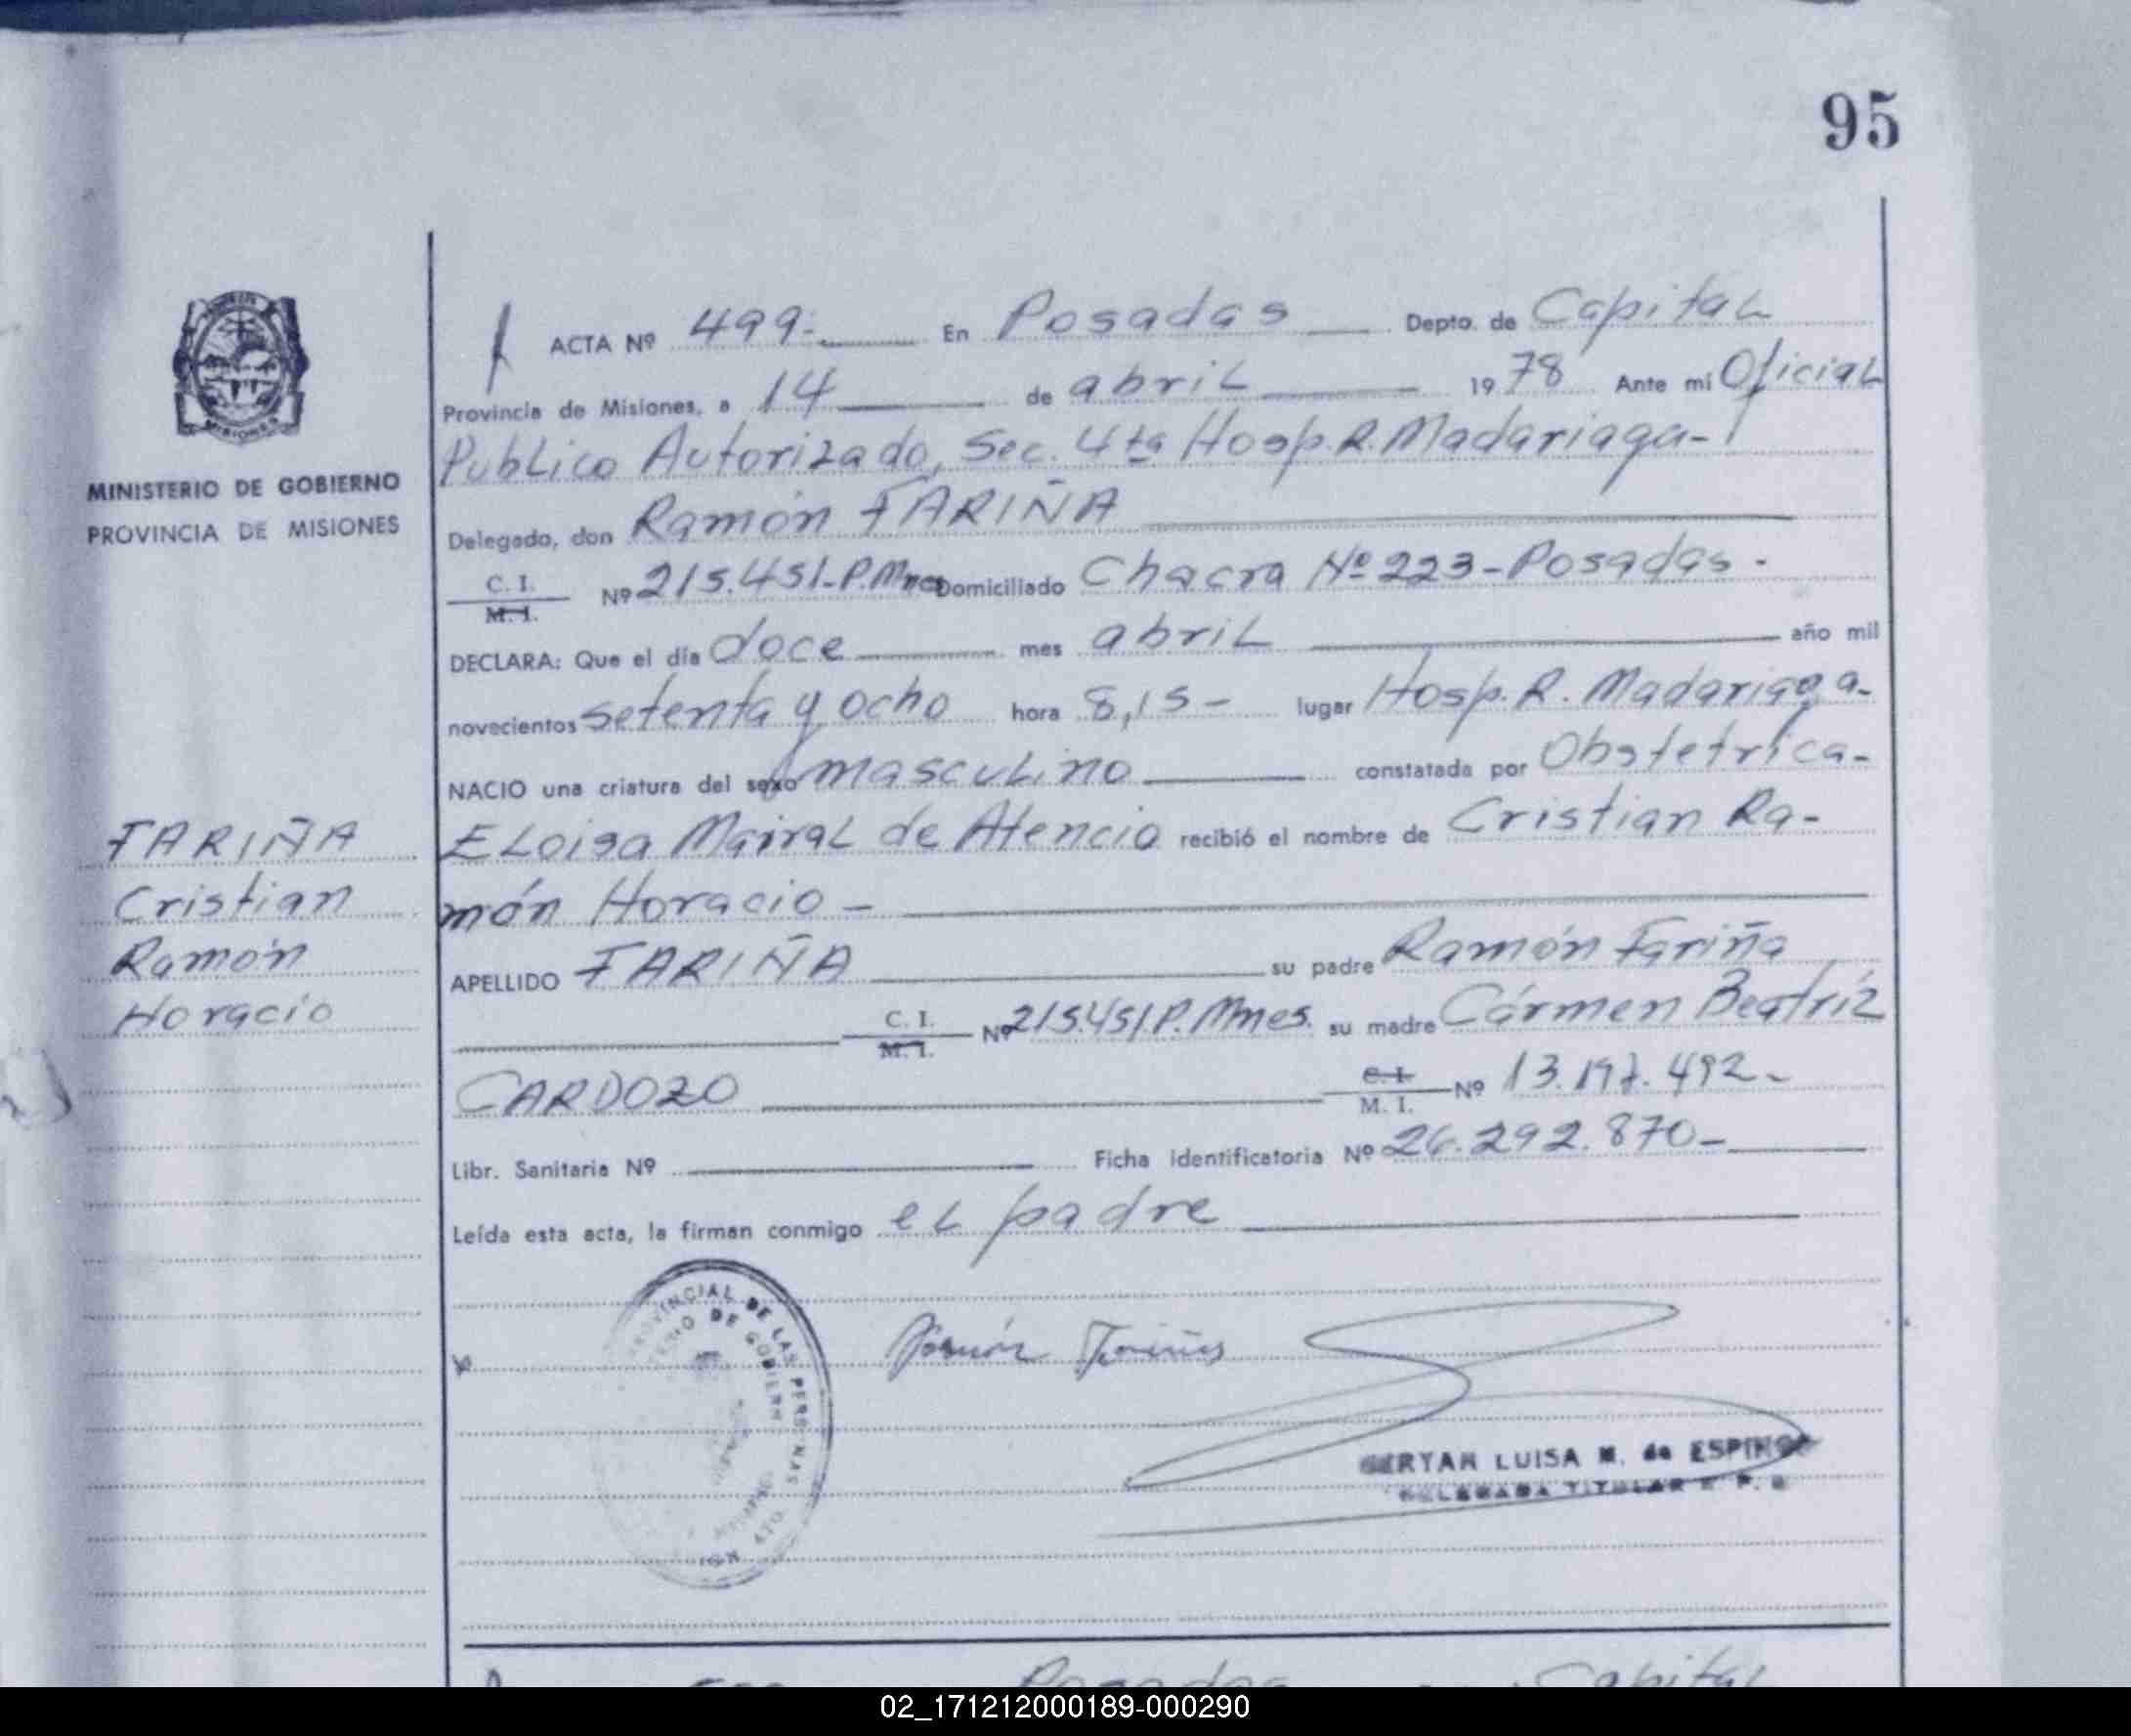 95
ACTA Nº 499- En Posadas Depto. de Capital
Provincia de Misiones, a 14 de abril 1978 Ante mí Oficial
Publico Autorizado, Sec. 4ta Hosp. R. Madariaga-
Delegado, don Ramón FARIÑA
C. I. M. I. Nº 215.451-P.Mnes Domiciliado Chacra Nº 223-Posadas-
DECLARA: Que el día doce mes abril año mil
novecientos setenta y ocho hora 8,15- lugar Hosp. R. Madariaga-
NACIO una criatura del sexo masculino constatada por Obstetrica-
ELoisa Mairal de Atencio recibió el nombre de Cristian Ra-
món Horacio-
APELLIDO FARIÑA su padre Ramón Fariña
C. I. M. I. Nº 215.451 P. Mnes. su madre Cármen Beatríz
CARDOZO C. I. M. I. Nº 13.197.492-
Libr. Sanitaria Nº Ficha identificatoria Nº 26.292.870-
Leída esta acta, la firman conmigo el padre
MINISTERIO DE GOBIERNO
PROVINCIA DE MISIONES
FARIÑA
Cristian
Ramón
Horacio
MISIONES
PROVINCIAL DE LAS PERSONAS
DE GOBIERN
Ramón Fariña
LUISA M. de ESPINOZA
DELEGADA TITULAR
Posadas Capital
02_171212000189-000290